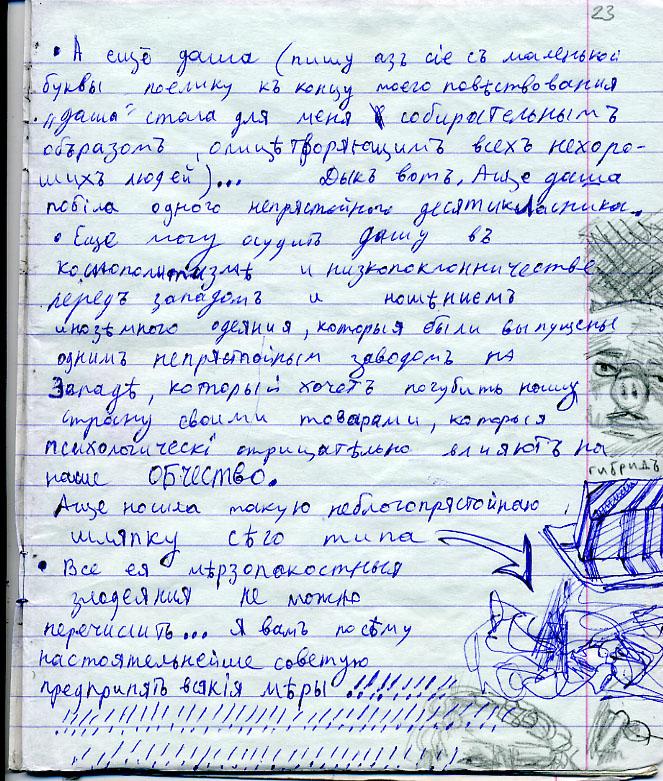 23
• А ещё даша (пишу азъ сiе съ маленькой
буквы поелику къ концу моего повѣствования
„даша“ стала для меня собирательнымъ
образомъ, олицѣтворяющимъ всехъ нехоро-
шихъ людей)... Дыкъ вотъ, Аще даша
побiла одного непрястойного десятикласника.
• Ещё могу осудить дашу въ
космополитизмѣ и низкопоклонничестве
передъ западомъ и ношѣниемъ
инозѣмного одеяния, которыя были выпущены
однимъ непрястойным заводомъ на
Западѣ, который хочетъ погубить нашу
страну своими товарами, которыя
психологическi отрицатѣльно влияютъ на
наше ОБЧЕСТВО.
Аще носила такую неблогопрястойнаю
шляпку сѣго типа
гибридъ
• Все ея мѣрзопакостныя
злодеяния не можно
перечислить... Я вамъ посѣму
настоятельнейше советую
предпринять всякiя мѣры !!!!!!!!!!